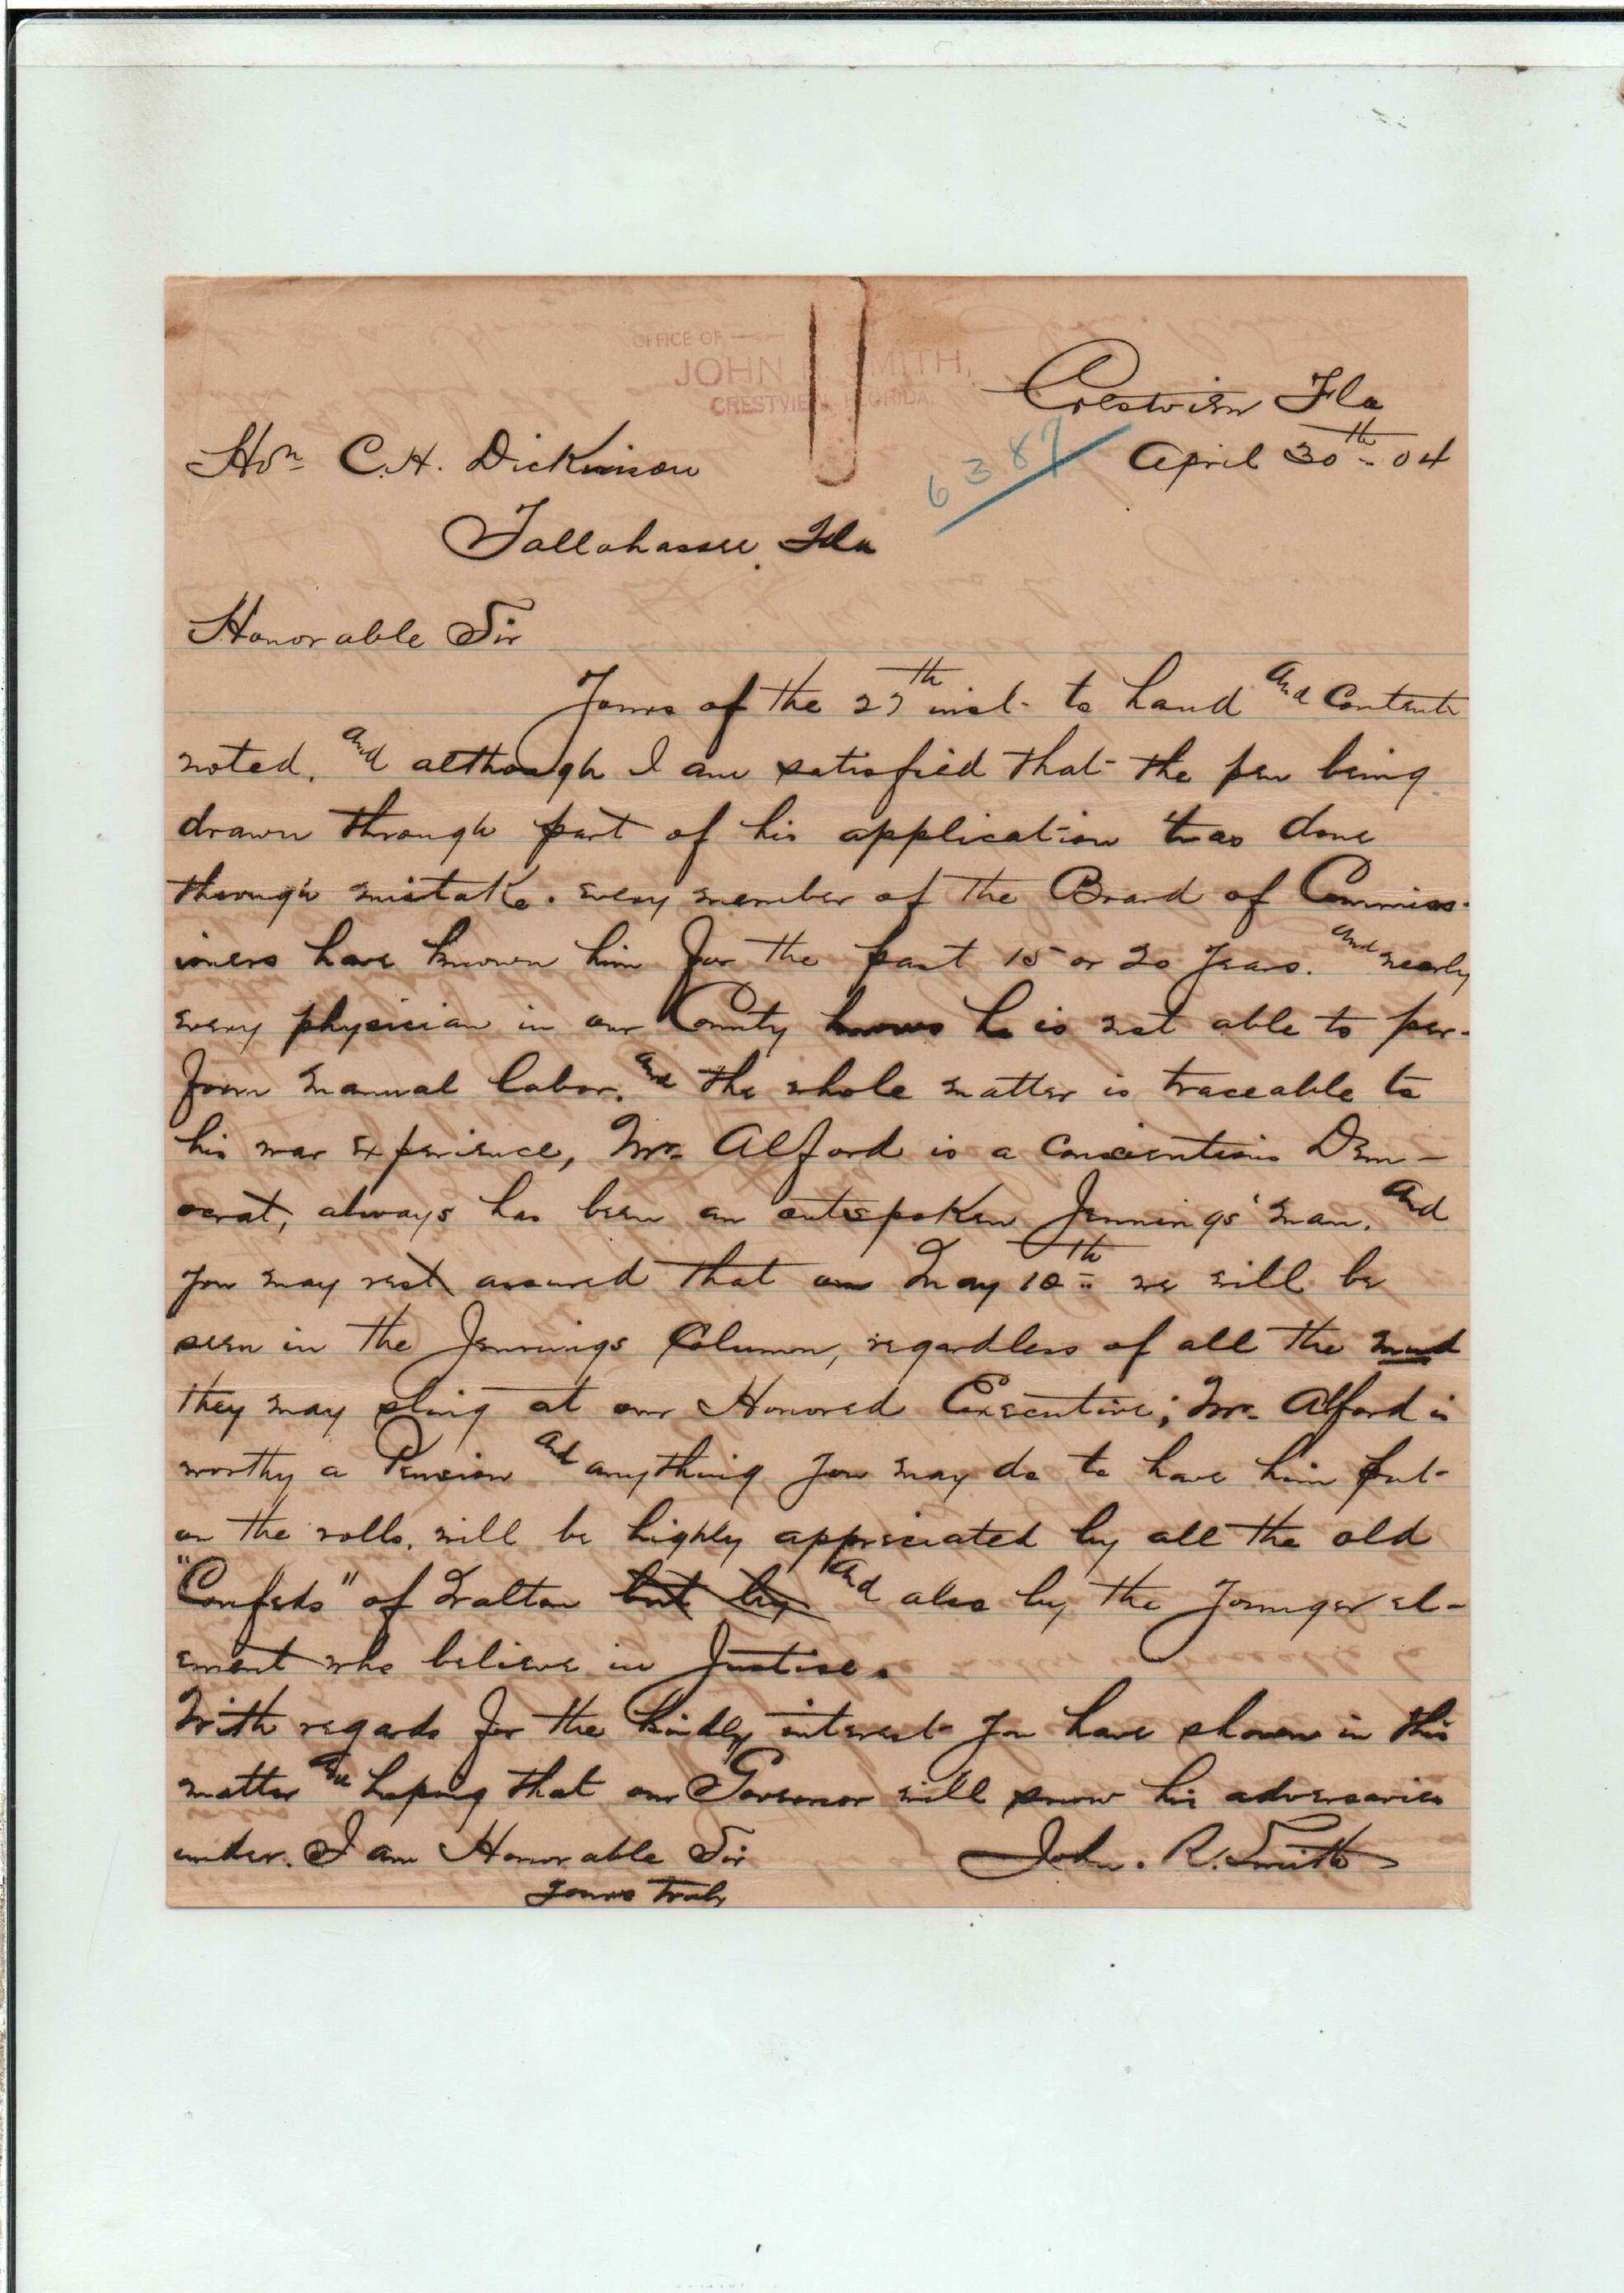 OFFICE OF
JOHN SMITH,
CRESTVIEW, FLORIDA.
Crestview Fla
April 30th - 04
6387
Hon C.H. Dickinson
Tallahassee, Fla
Honorable Sir
Yours of the 27th inst. to hand and contents
noted. and although I am satisfied that the pen being
drawn through part of his application was done
through mistake. every member of the Board of Commiss-
ioners have known him for the past 15 or 20 years. and nearly
every physician in our County knows he is not able to per-
form manual labor. and the whole matter is traceable to
his war experience, Mr. Alford is a conscientious Dem-
ocrat, always has been an outspoken Jennings' man. and
you may rest assured that on May 10th we will be
seen in the Jennings Column, regardless of all the mud
they may sling at our Honored Executive; Mr. Alford is
worthy a Pension and anything you may do to have him put
on the rolls. will be highly appreciated by all the old
"Confeds" of Walton but by and also by the Younger el-
ement who believe in Justice.
With regards for the kindly interest you have shown in this
matter and hoping that our Governor will snow his adversaries
under. I am Honorable Sir
Yours truly
John. R. Smith